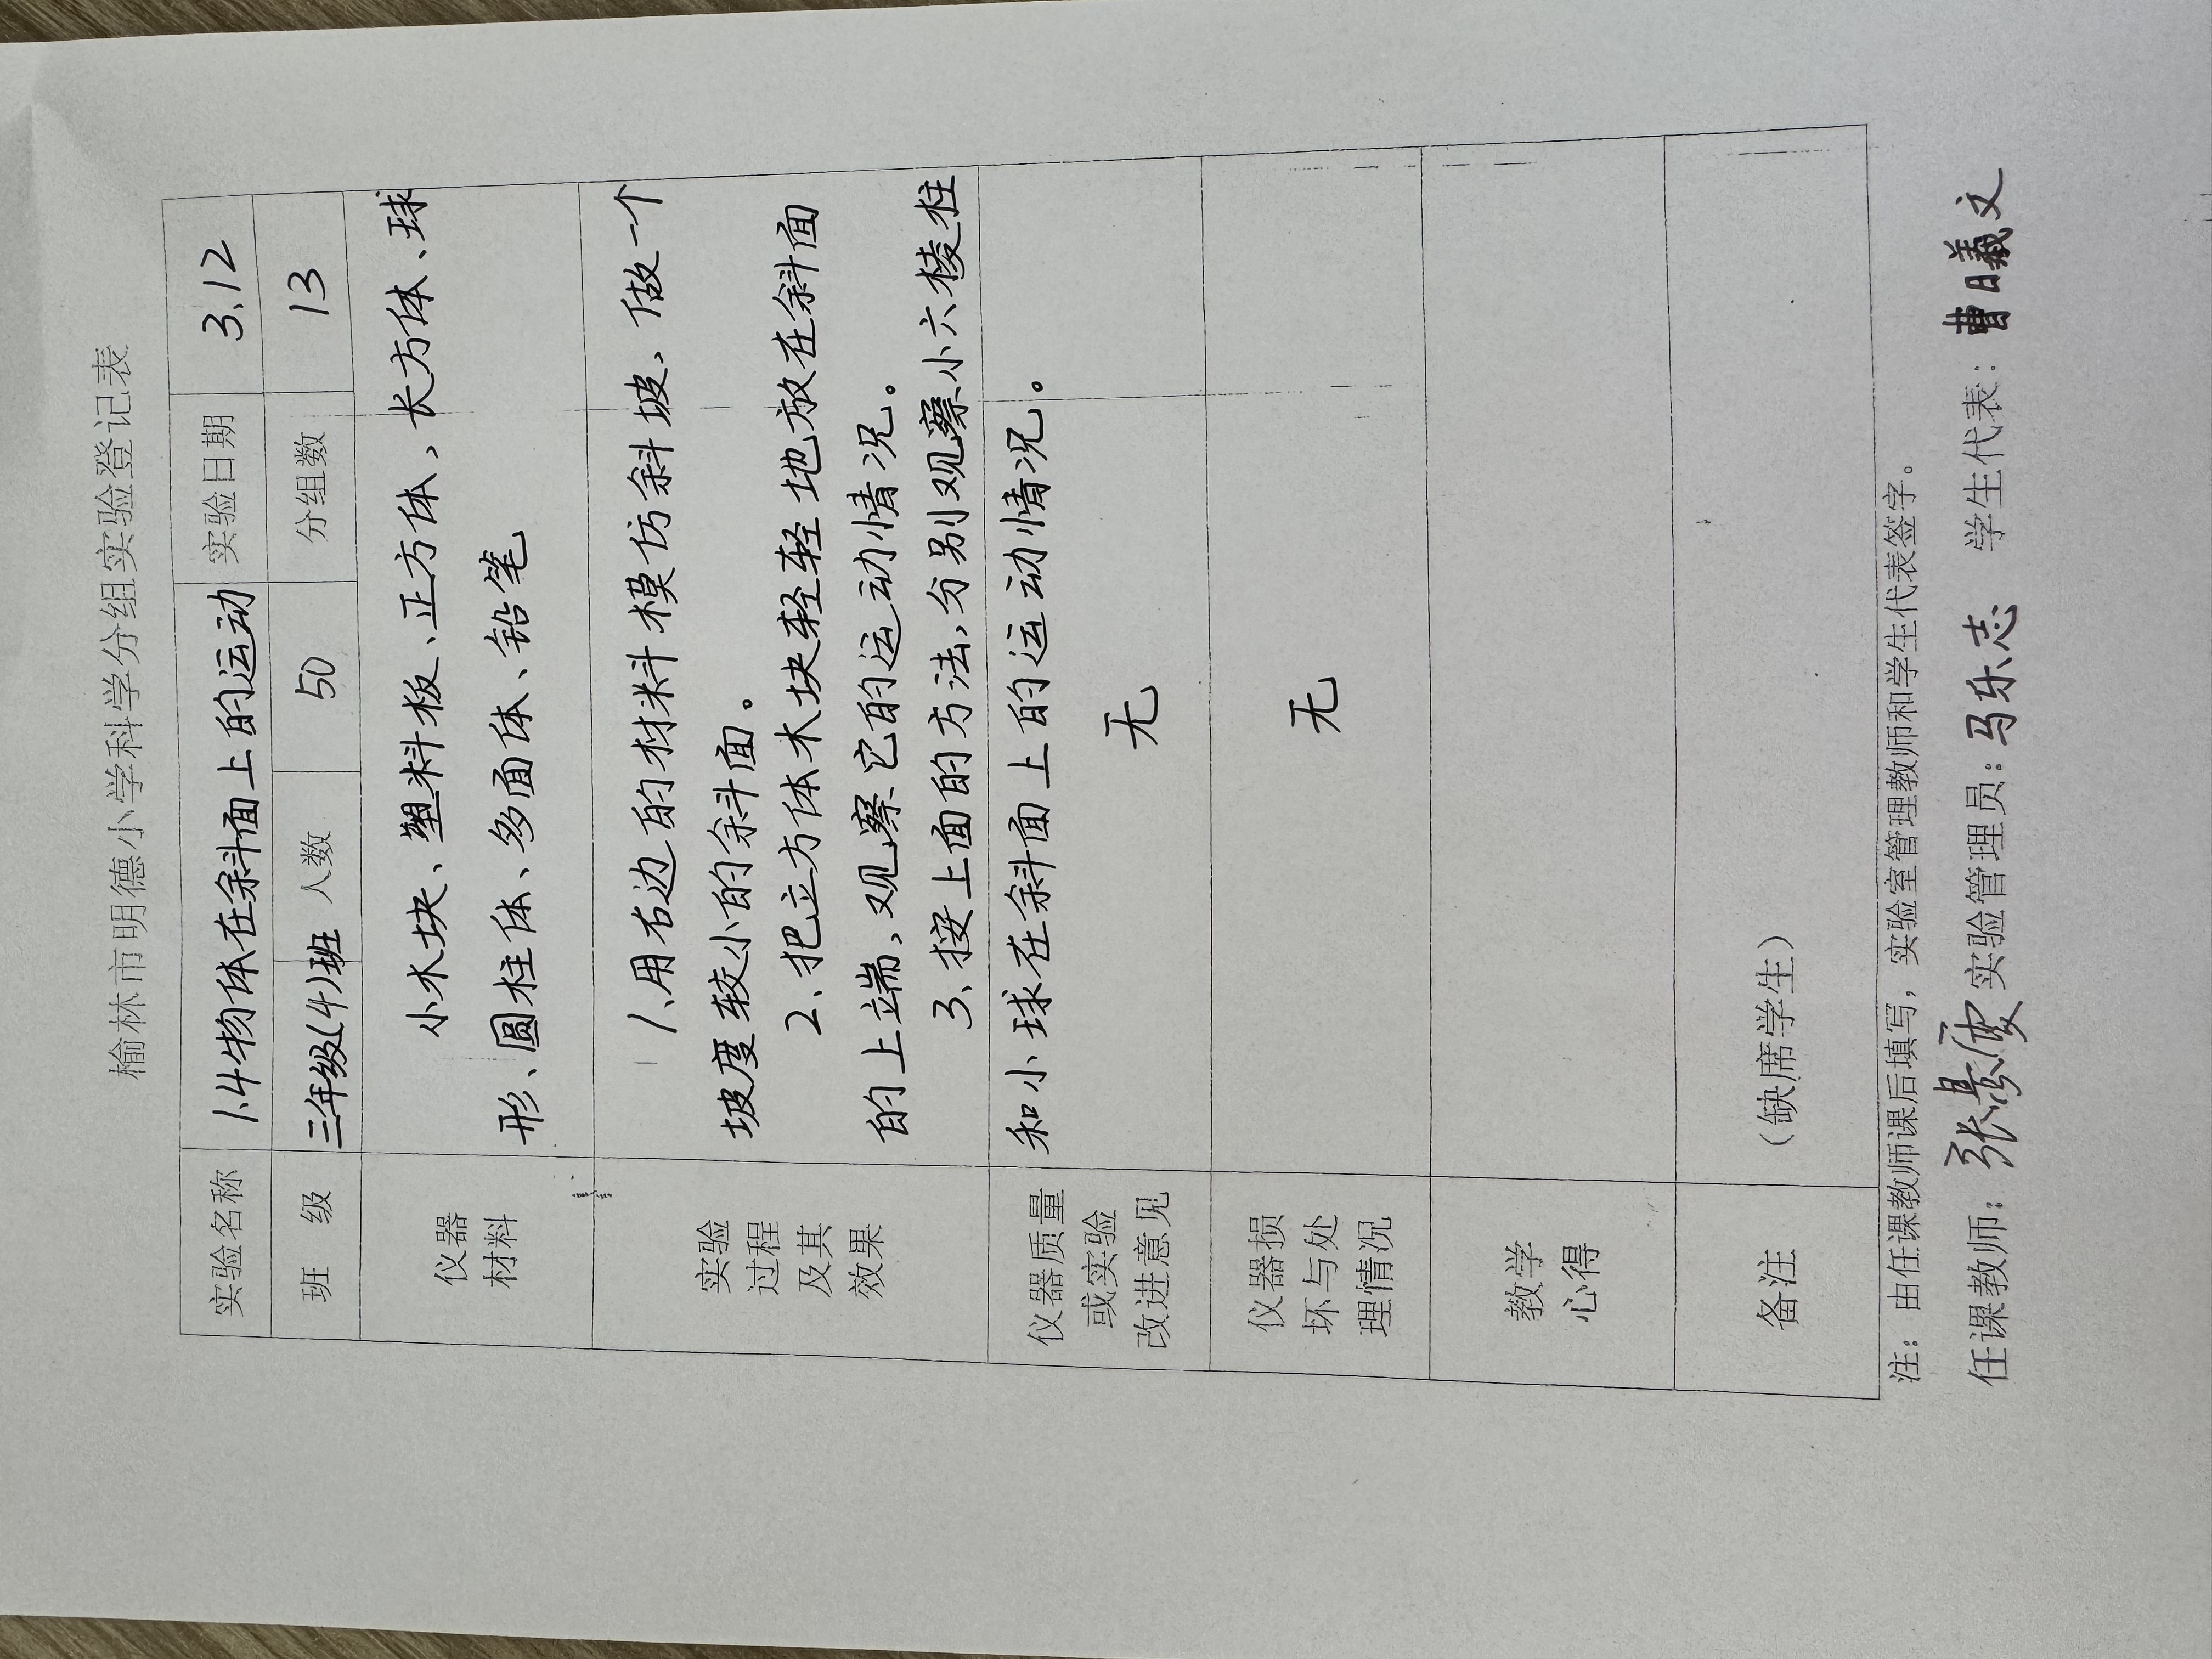 榆林市明德小学科学分组实验登记表
实验名称 1.4物体在斜面上的运动 实验日期 3.12
班 级 三年级(4)班 人数 50 分组数 13
仪器材料 小木块、塑料板、正方体,长方体、球
形、圆柱体、多面体、铅笔
实验过程及其效果 1、用右边的材料模仿斜坡,做一个
坡度较小的斜面。
2、把立方体木块轻轻地放在斜面
的上端,观察它的运动情况。
3、按上面的方法,分别观察小六棱柱
和小球在斜面上的运动情况。
仪器质量或实验改进意见 无
仪器损坏与处理情况 无
教学心得
备注 (缺席学生)
注:由任课教师课后填写,实验室管理教师和学生代表签字。
任课教师:张 实验管理员:马乐志 学生代表:曹曦文